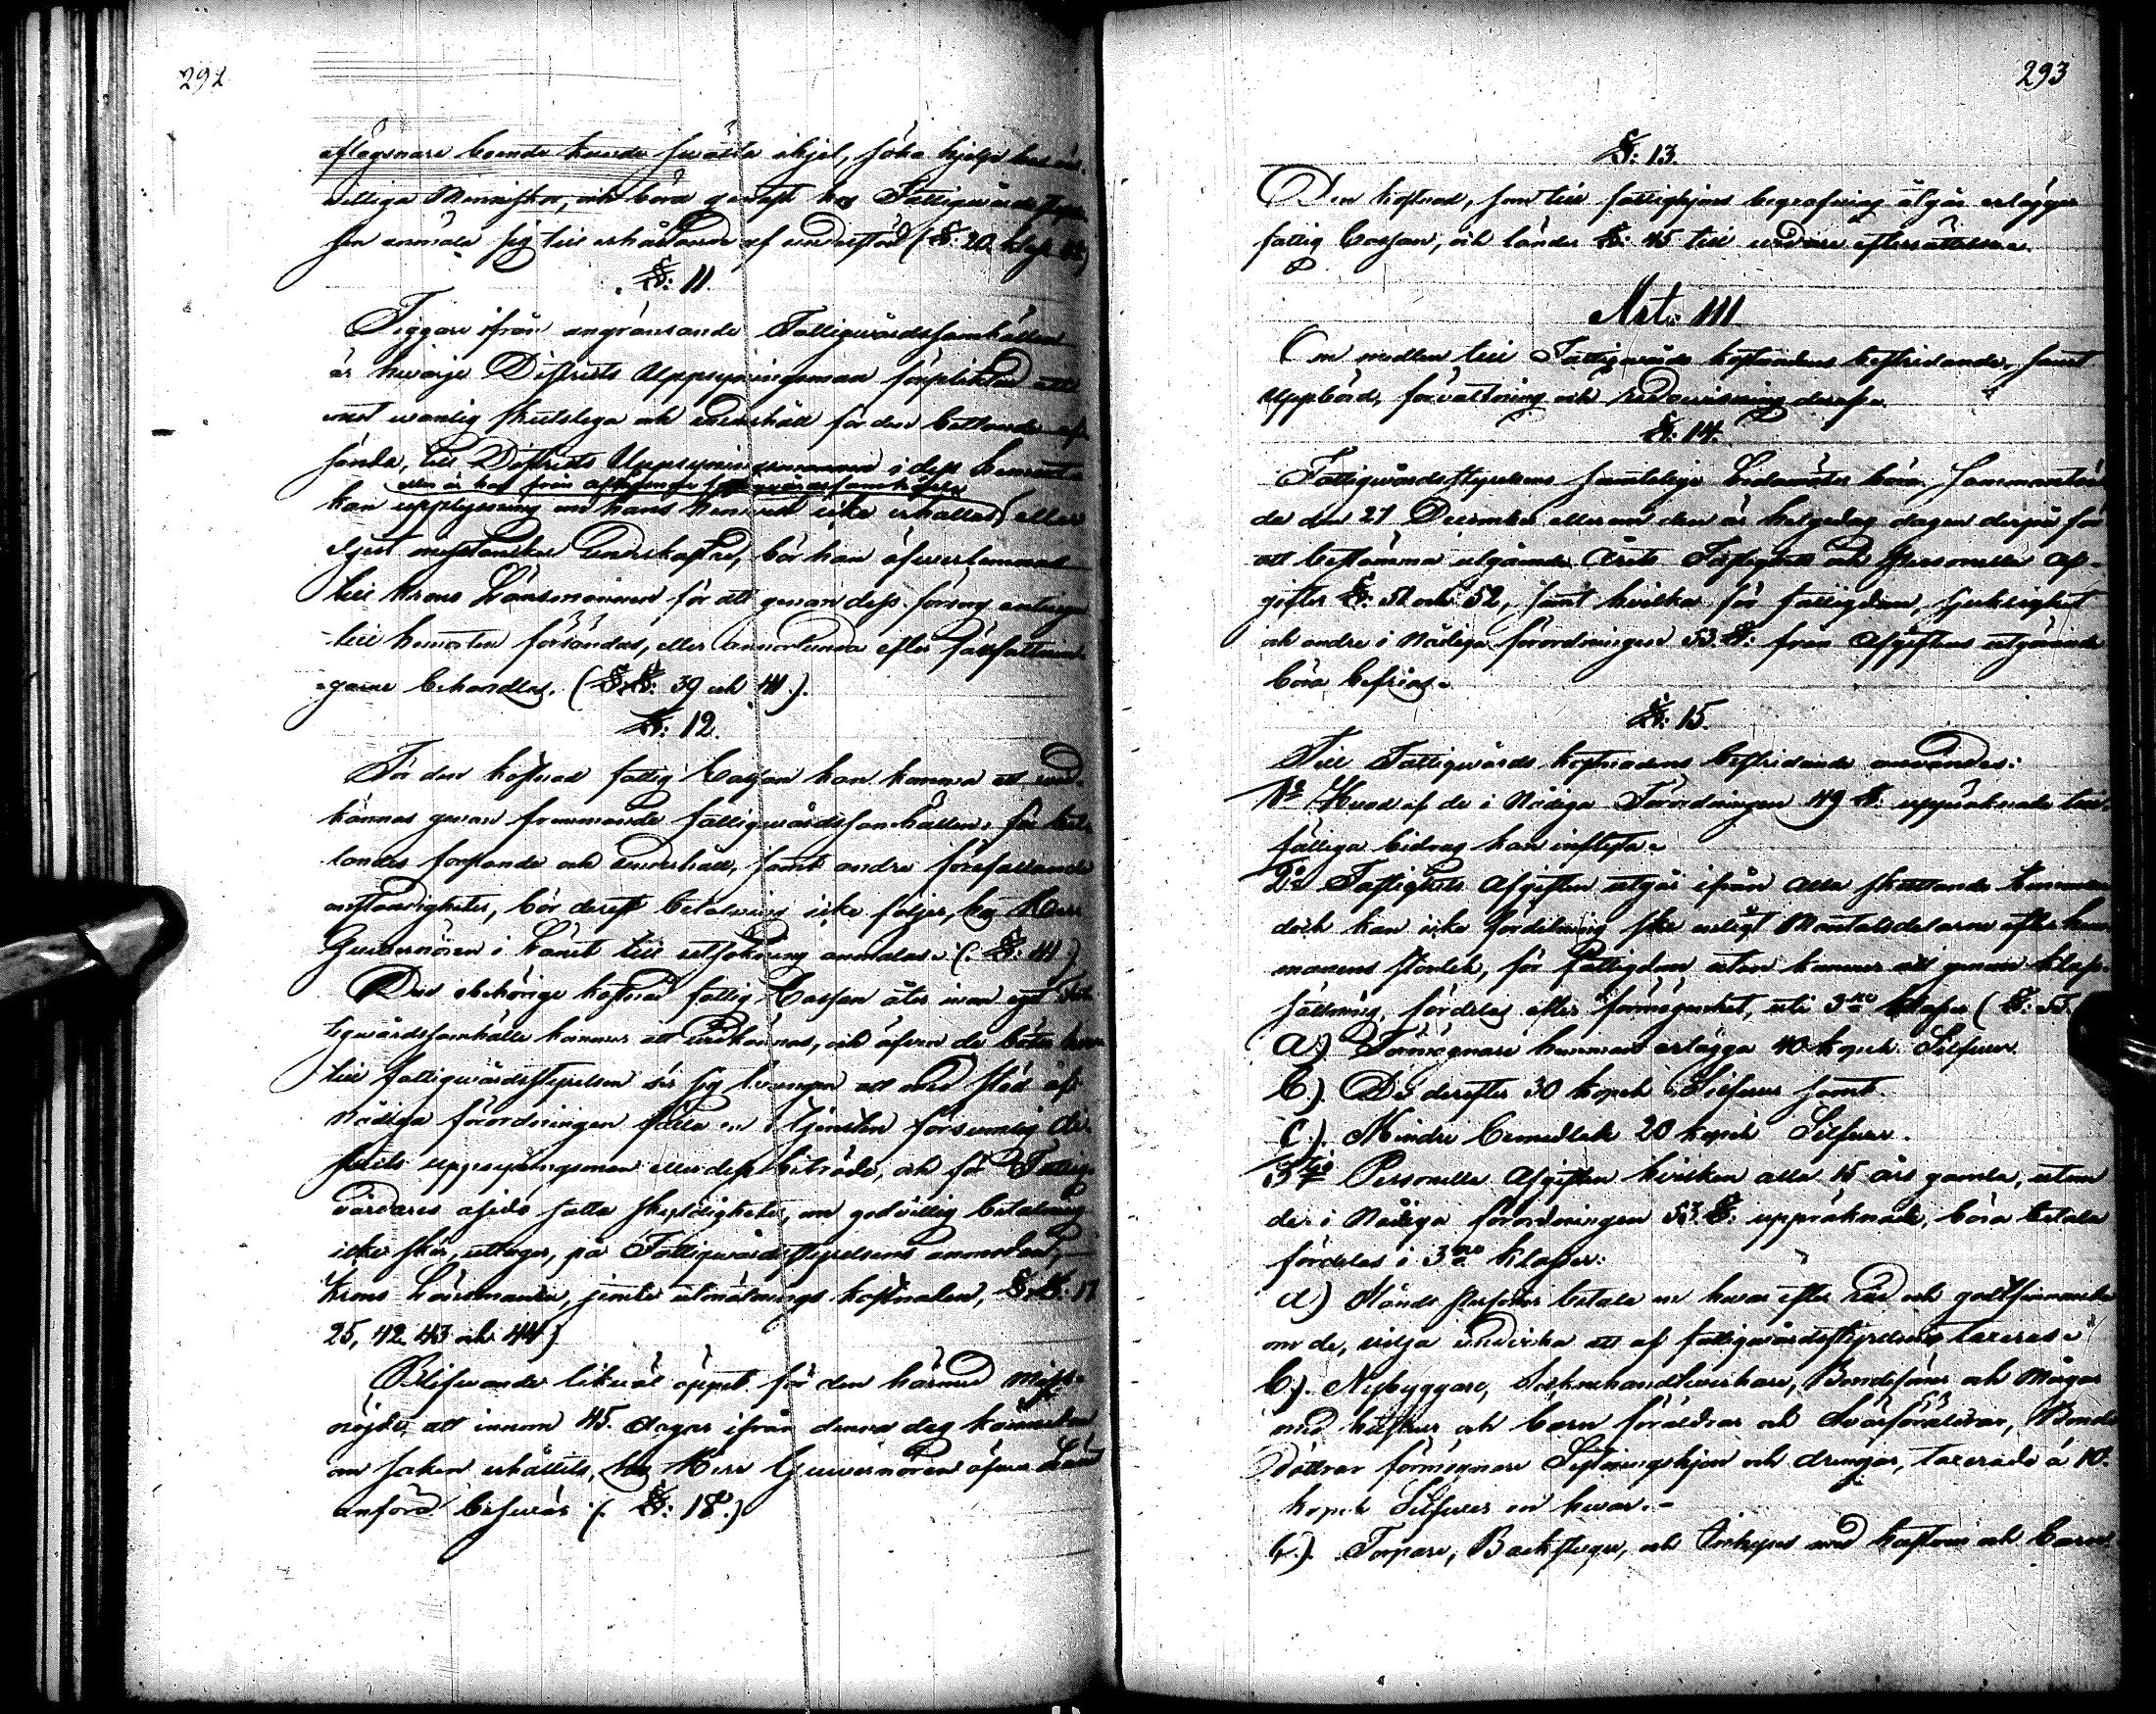 292
aflägsnare boende kunde swälta ihjel, söka hjelp hos
willige Menniskor, och böra genast hos Fattigwårdsstyrel
sen anmäla sig till erhållande af understöd (§: 20.
§: 11
Tiggare ifrån angränsande Fattigwårdssamhällen
är hwarje Districts Uppsyningsman förpliktad att
mot wanlig skutslega och underhåll för den bettlande af-
sända, till Districts Uppsyningsmannen i dess hemorte
eller är han från aflägsnare fattigwårdssamhälle
kan upplysning om hans hemwist icke erhållas, eller
eljest misstankar, bör han öfwerlemnas
till Krono Länsmannen för att genom dess försorg antingen
till hemorten försändas, eller annorlunda efter författnin-
garne behandlas. (§.§: 39 och 41.).
§: 12.
För den kostnad fattig Cassan kan komma att wid-
kännas genom främmande fattigwårdssamhällen, för bett-
landes forslande och underhåll, samt andre förefallande
omständigheter, bör derest betalning icke följer, hos Herr
Guvernören i Länet till utsökning anmälas. (. §: 41.)
Den obehörige kostnad fattig Cassan åter inom eget Fat-
tigwårdssamhälle kommer att widkännas, och äfven de böter
till fattigwårdsstyrelsen ser sig twungen att med stöd af
Nådiga förordningen fälla en i tjensten försumlig Di-
stricts uppsyningsman eller dess biträde, och för Fattig-
wårdares åsido satta skyldigheter, om godwillig betalning
icke sker, uttages, på Fattigwårdsstyrelsens anmodan,
Krono Länsmannen, jemte utmätnings kostnaden, §.§. 17
25, 42, 43 och 44.)
Blifwande likwäl öppet för den härmed miss-
nöjde, att innom 45. dagar ifrån denna dag kännedom
om saken erhållits, hos Herr Guvernören öfwer Länet
anföra beswär (. §: 18.)
293
§: 13.
Den kostnad, som till fattighjons begrafning åtgår erlägges
fattig Cassan, och länder §: 45 till widare efterrättelse.
Art: III.
Om medlen till Fattigwårds kostnadens bestridande, samt
Uppbörd, förvaltning och redovisning deraf.
§: 14.
Fattigwårdsstyrelsens samtelige Ledamöter böra sammanträ
da den 27 December eller om den är helgedag dagen derpå för
att bestämma utgående Årets Fastighets och Personella af-
gifter §: 51 och 52, samt hvilka för fattigdom, sjuklighet
och andre i Nådiga förordningen 53. §: från Afgiftens utgörande
böra befrias.
§: 15.
Till Fattigwårds kostnadens bestridande användas:
1o Hvad af de i Nådiga Förordningen 49 §: uppräknade till-
fälliga bidrag kan inflyta.
2o Fastighets Afgiften utgår ifrån alla skattande hemman
dock kan icke fördelning ske enligt Mantalsdelarne efter hem-
manens storlek, för fattigdom utan kommer att genom klass-
sättning, fördelas efter förmögenhet, uti 3ne Klasser (§: 51.
a.) Förmögnare hemman erlägga 40 kopek Silfwer.
b.) De derefter 30 kopek Silfwer samt.
c.). Mindre bemedlade 20 kopek Silfwer.
3o Personella Afgiften hvilken alla 15 års gamla, utom
de i Nådiga förordningen 53. §: uppräknade, böra betala
fördelas i 3ne klasser:
a.) Stånds personer betala en hwar efter råd och godtfinnande
om de, wilja undwika att af fattigwårdsstyrelsen taxeras.
b.). Nybyggare, Socknehandtwerkare, Bondesöner och Mågar
med hustrur och barn föräldrar och Swärföräldrar, Bonde
döttrar förmögnare Sytningshjon och drengar, taxerade á 10.
kopek Silfwer en hwar.-
c.). Torpare, Backstugu, och Inhyses med hustrur och barn